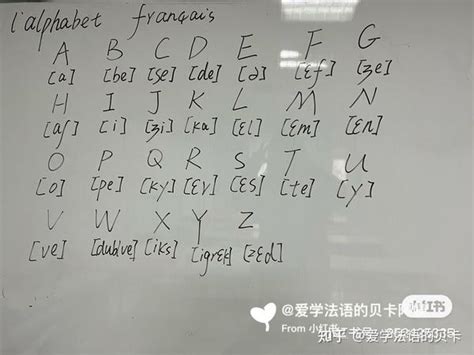 l'alphabet français
A B C D E F G
[a] [be] [se] [de] [ə] [ɛf] [ʒe]
H I J K L M N
[aʃ] [i] [ʒi] [ka] [ɛl] [ɛm] [ɛn]
O P Q R S T U
[o] [pe] [ky] [ɛr] [ɛs] [te] [y]
V W X Y Z
[ve] [dublve] [iks] [igrɛk] [zɛd]
@爱学法语的贝卡
小红书
From 小红书
知乎 @爱学法语的贝卡